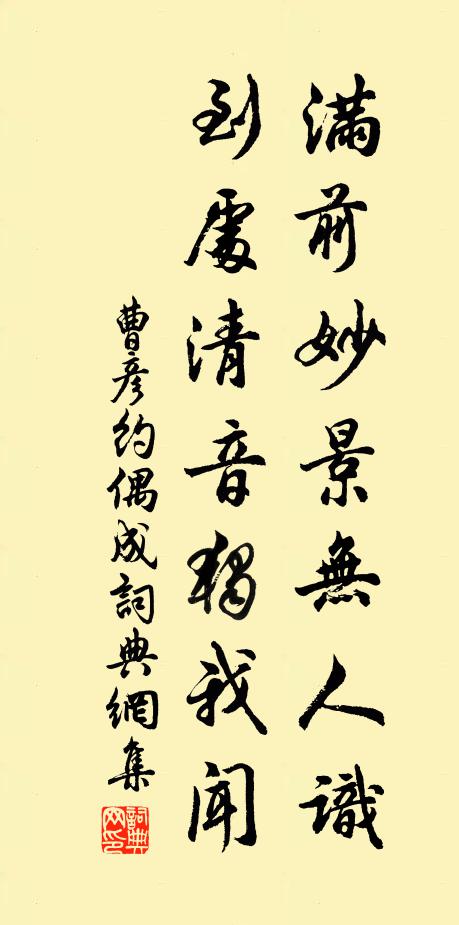 滿前妙景無人識
到處清音獨我聞
曹彦約偶成詞典網集
詞典网印